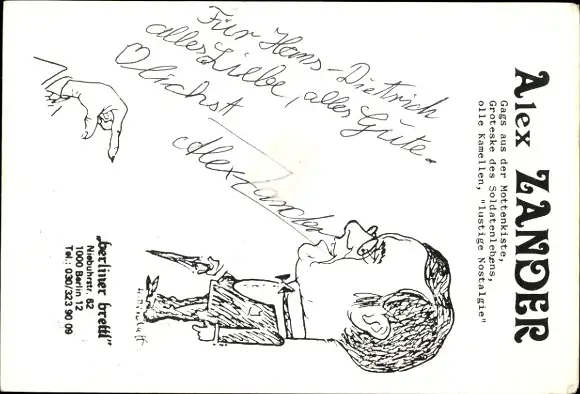 Alex ZANDER
Gags aus der Mottenkiste,
Groteske des Soldatenlebens,
olle Kamellen, "lustige Nostalgie"
Für Hans-Dietrich
alles Liebe, alles Gute.
Alex Zander
„berliner brettl"
Niebuhrstr. 82
1000 Berlin 12
Tel.: 030/323 90 09